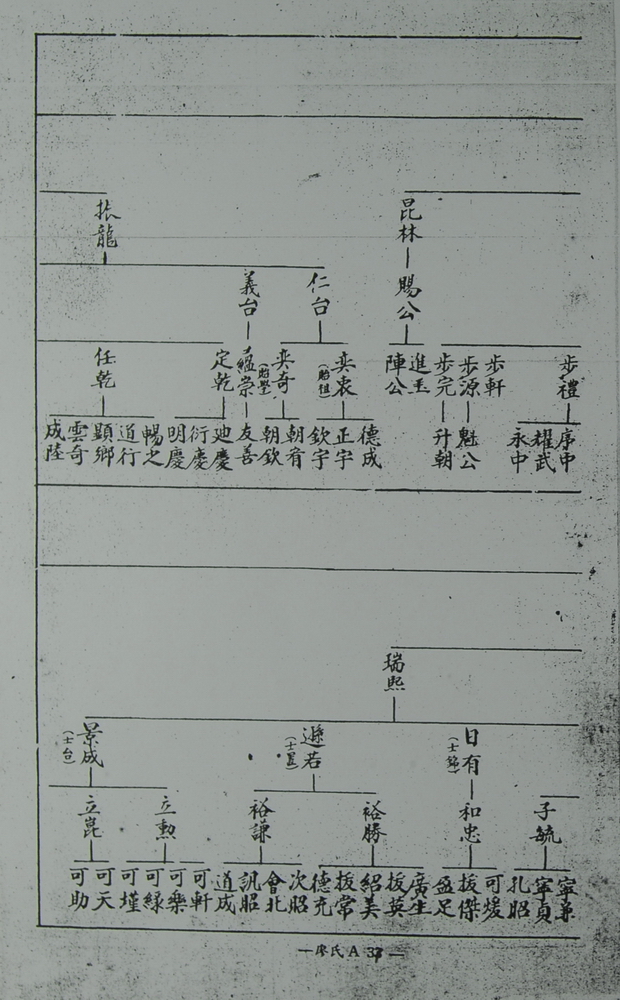 昆林
振龍
賜公
仁台
義台
步禮
步軒
步源
步完
進玉
陣公
奕衷
奕奇
蘊崇
定乾
任乾
序中
耀武
永中
魁公
升朝
德成
正宇
欽宇
朝宥
朝欽
友善
迪慶
衍慶
明慶
暢之
道行
顯鄉
雲奇
成陸
瑞熙
日有
遜若
景成
(士台)
子毓
和忠
裕勝
裕謙
立勲
立崑
寧員
孔昭
可煖
拔傑
盈足
廣生
拔英
紹美
拔常
德充
次昭
會北
訊昭
道成
可軒
可樂
可緑
可墐
可天
可助
—廖氏A